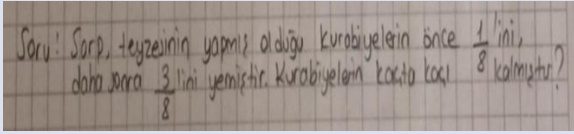 Soru: Sarp, teyzesinin yapmış olduğu kurabiyelerin önce 1/8'ini,
daha sonra 3/8'ini yemiştir. Kurabiyelerin kaçta kaçı kalmıştır?